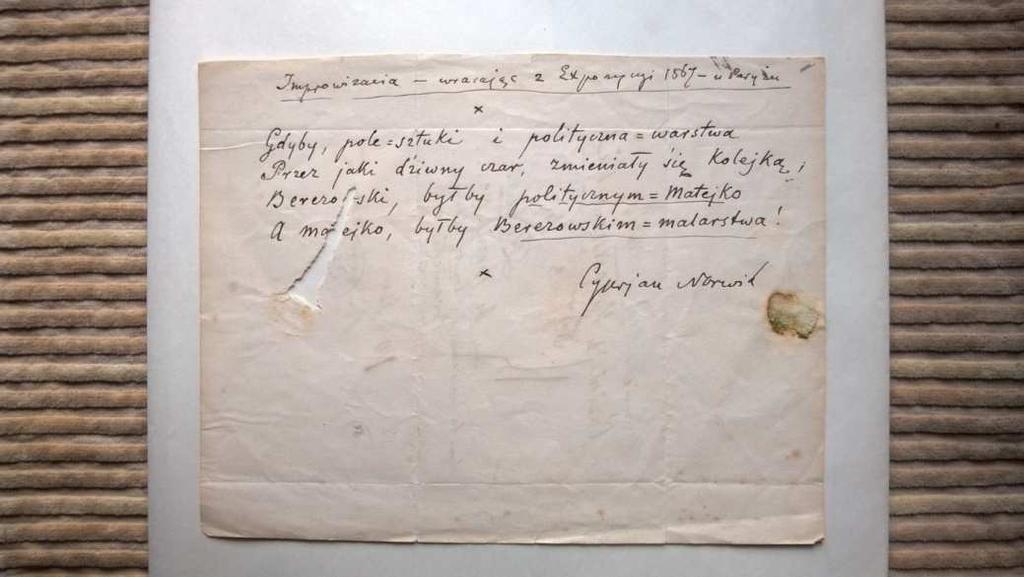 Improwizacia – wracając z Expozycyi 1867 – w Paryżu
×
Gdyby, pole=sztuki i polityczna=warstwa
Przez jaki dźiwny czar, zmieniały się kolejką,
Berezowski, byłby politycznym=Matejko
A matejko, byłby Berezowskim=malarstwa!
×
Cyprjan Norwid